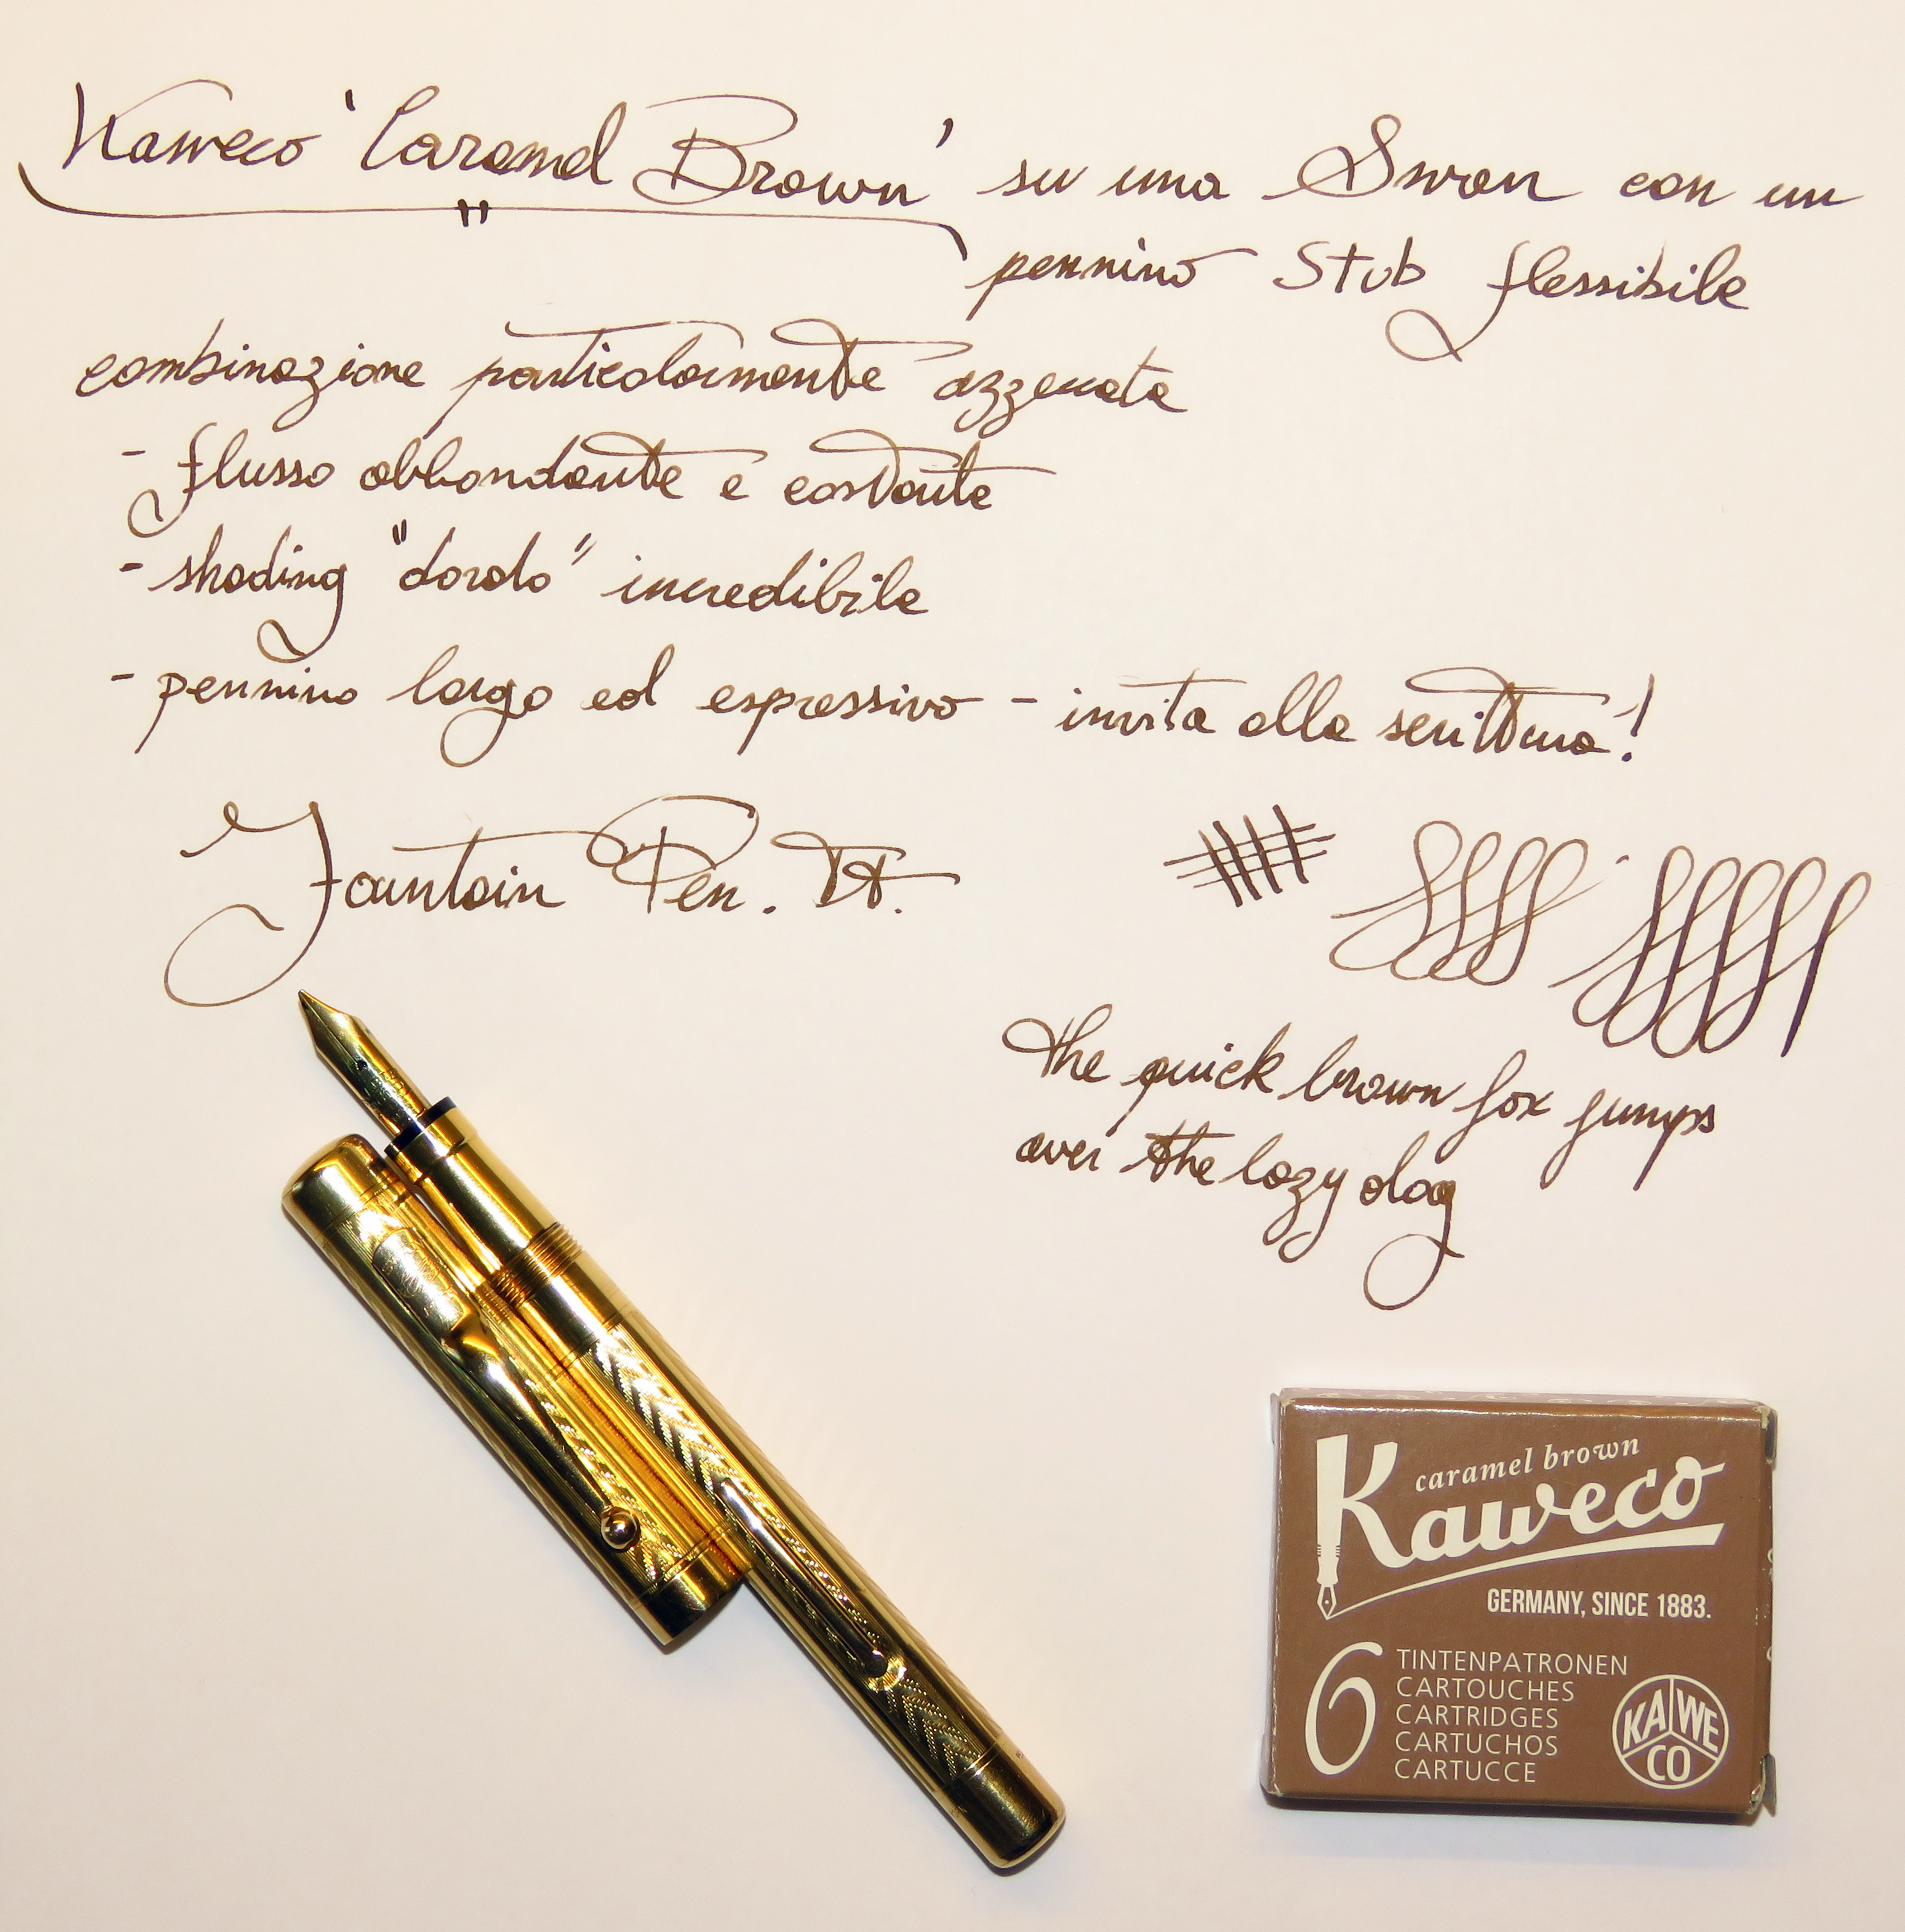 Kaweco 'Caramel Brown' su una Swan con un
pennino Stub flessibile
combinazione particolarmente azzeccata
- flusso abbondante e costante
- shading "dorato" incredibile
- pennino largo ed espressivo - invita alla scrittura!
Fountain Pen. It.
the quick brown fox jumps
over the lazy dog
caramel brown
Kaweco
GERMANY, SINCE 1883.
6
TINTENPATRONEN
CARTOUCHES
CARTRIDGES
CARTUCHOS
CARTUCCE
KA WE
CO